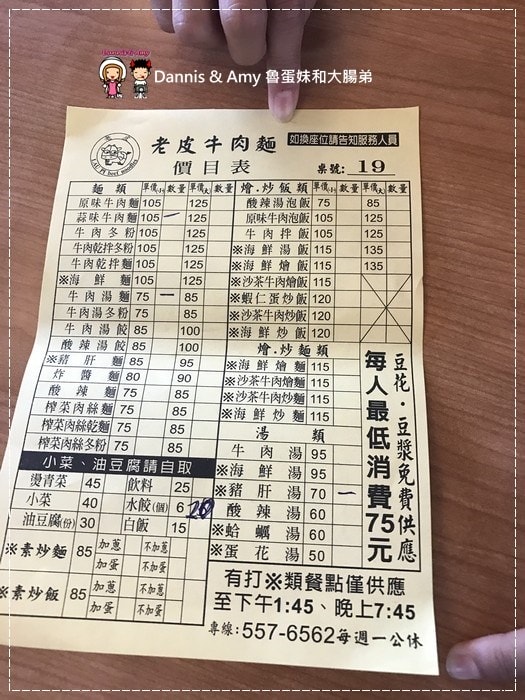 Dannis & Amy
Dannis & Amy 魯蛋妹和大腸弟
老皮
LAU PI beef noodles
老皮牛肉麵
如換座位請告知服務人員
價目表
桌號: 19
麵類 單價(小) 數量 單價(大) 數量
原味牛肉麵 105 125
蒜味牛肉麵 105 一 125
牛肉冬粉 105 125
牛肉乾拌冬粉 105 125
牛肉乾拌麵 105 125
※海鮮麵 105 125
牛肉湯麵 75 一 85
牛肉湯冬粉 75 85
牛肉湯餃 85 100
酸辣湯餃 85 100
※豬肝麵 85 95
炸醬麵 80 90
酸辣麵 75 85
榨菜肉絲麵 75 85
榨菜肉絲乾麵 75 85
榨菜肉絲冬粉 75 85
小菜、油豆腐請自取
燙青菜 45 飲料 25
小菜 40 水餃(個) 6 20
油豆腐(份) 30 白飯 15
※素炒麵 85 加蔥 不加蔥
加蛋 不加蛋
※素炒飯 85 加蔥 不加蔥
加蛋 不加蛋
燴.炒飯類 單價(小) 數量 單價(大) 數量
酸辣湯泡飯 75 85
原味牛肉泡飯 105 125
牛肉拌飯 105 125
※海鮮湯飯 115 135
※海鮮燴飯 115 135
※沙茶牛肉燴飯 115
※蝦仁蛋炒飯 120
※沙茶牛肉炒飯 120
※海鮮炒飯 120
燴.炒麵類
※海鮮燴麵 115
※沙茶牛肉燴麵 115
※沙茶牛肉炒麵 115
※海鮮炒麵 115
湯類
牛肉湯 95
※海鮮湯 95
※豬肝湯 70 一
酸辣湯 60
※蛤蠣湯 60
※蛋花湯 50
豆花.豆漿免費供應
每人最低消費75元
有打※類餐點僅供應
至下午1:45、晚上7:45
專線:557-6562每週一公休